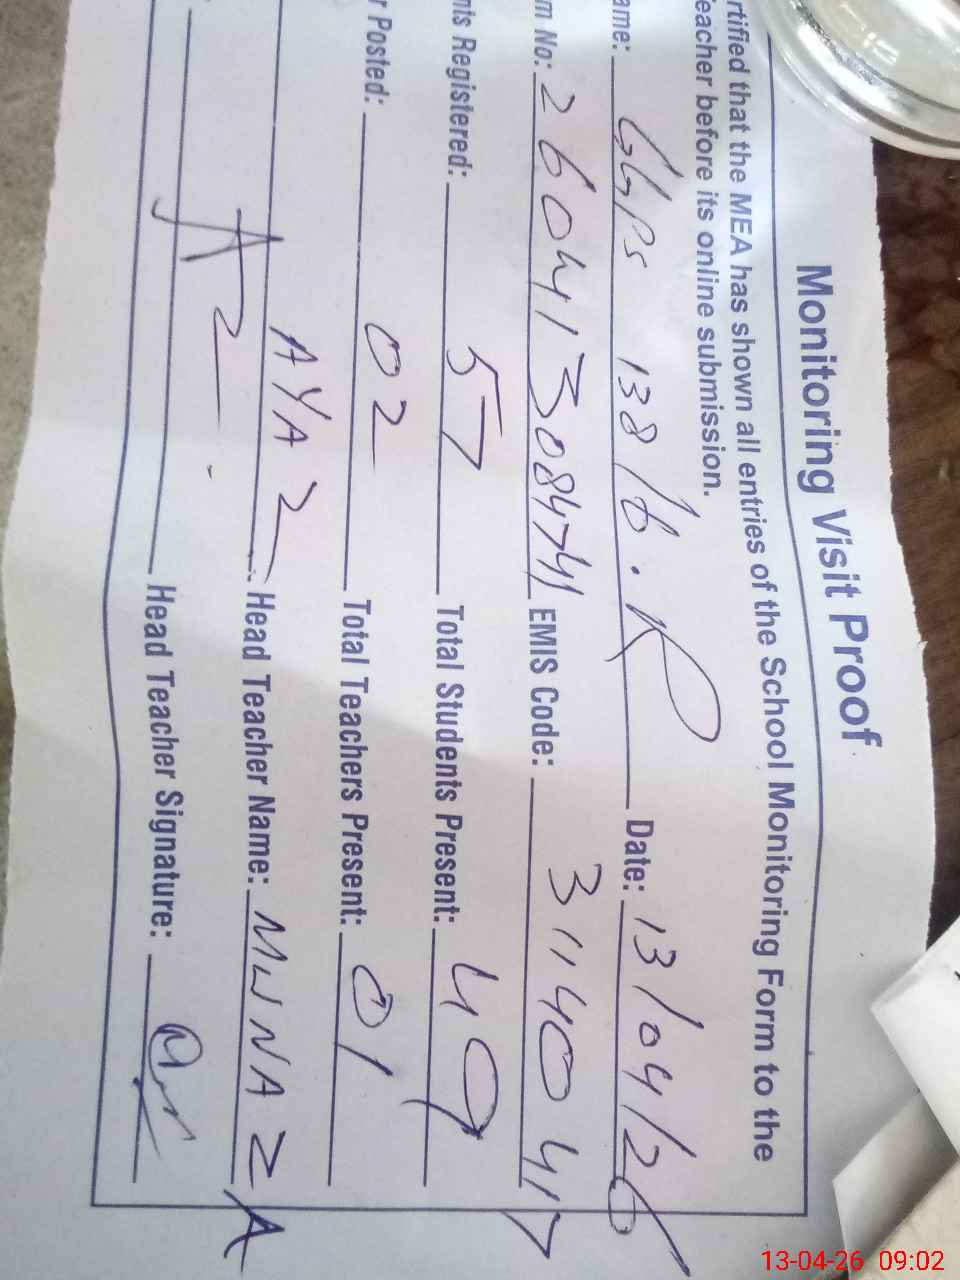 Monitoring Visit Proof
rtified that the MEA has shown all entries of the School Monitoring Form to the
eacher before its online submission.
ame: GGPS 138/6.R Date: 13/04/26
m No: 260413084741 EMIS Code: 31140417
nts Registered: 57 Total Students Present: 49
r Posted: 02 Total Teachers Present: 01
AYAZ Head Teacher Name: MUNAZA
Head Teacher Signature:
13-04-26 09:02